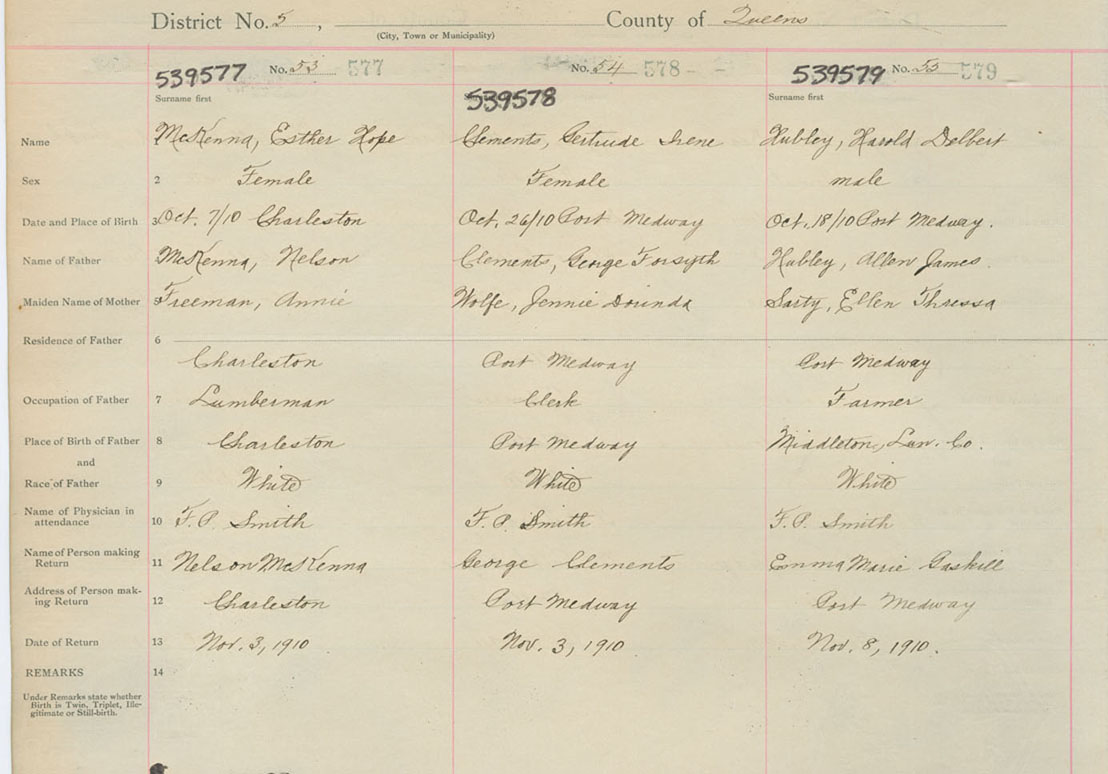 District No. 5, County of Queens
(City, Town or Municipality)
539577 No. 53 577 No. 54 578 - - 539579 No. 55 579
Surname first 539578 Surname first
Name McKenna, Esther Hope Clements, Gertrude Irene Hubley, Harold Delbert
Sex 2 Female Female male
Date and Place of Birth 3 Oct. 7/10 Charleston Oct. 26/10 Port Medway Oct. 18/10 Port Medway.
Name of Father McKenna, Nelson Clements, George Forsyth Hubley, Allen James.
Maiden Name of Mother 5 Freeman, Annie Wolfe, Jennie Dorinda Sarty, Ellen Thressa
Residence of Father 6
Charleston Port Medway Port Medway
Occupation of Father 7 Lumberman Clerk Farmer
Place of Birth of Father 8 Charleston Port Medway Middleton, Lun. Co.
and
Race of Father 9 White White White
Name of Physician in
attendance 10 F. P. Smith F. P. Smith F. P. Smith
Name of Person making
Return 11 Nelson McKenna George Clements Emma Marie Gaskill
Address of Person mak-
ing Return 12 Charleston Port Medway Port Medway
Date of Return 13 Nov. 3, 1910. Nov. 3, 1910. Nov. 8, 1910.
REMARKS 14
Under Remarks state whether
Birth is Twin, Triplet, Ille-
gitimate or Still-birth.